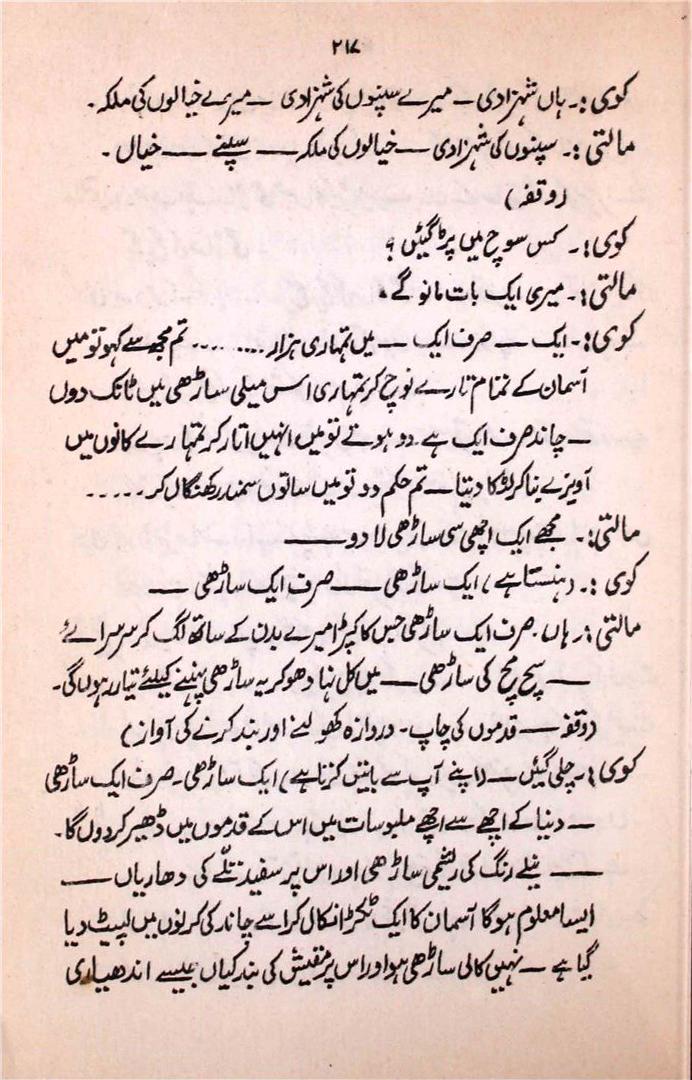 ۲۱۷
کوی:۔ ہاں شہزادی — میرے سپنوں کی شہزادی — میرے خیالوں کی ملکہ۔
مالتی:۔ سپنوں کی شہزادی — خیالوں کی ملکہ — سپنے — خیال۔
(وقفہ)
کوی:۔ کس سوچ میں پڑ گئیں؟
مالتی:۔ میری ایک بات مانو گے۔
کوی:۔ ایک — صرف ایک — میں تمہاری ہزار ........ تم مجھ سے کہو تو میں
آسمان کے تمام تارے نوچ کر تمہاری اس میلی ساڑھی میں ٹانک دوں
— چاند صرف ایک ہے۔ دو ہوتے تو میں انہیں اتار کر تمہارے کانوں میں
آویزے بنا کر لٹکا دیتا — تم حکم دو تو میں ساتوں سمندر کھنگال کر .....
مالتی:۔ مجھے ایک اچھی سی ساڑھی لا دو —
کوی:۔ (ہنستا ہے) ایک ساڑھی — صرف ایک ساڑھی —
مالتی:۔ ہاں۔ صرف ایک ساڑھی جس کا کپڑا میرے بدن کے ساتھ لگ کر سرسرائے
— سچ مچ کی ساڑھی — میں کل نہا دھو کر یہ ساڑھی پہننے کیلئے تیار رہوں گی۔
(وقفہ — قدموں کی چاپ۔ دروازہ کھولنے اور بند کرنے کی آواز)
کوی:۔ چلی گئیں — (اپنے آپ سے باتیں کرتا ہے) ایک ساڑھی۔ صرف ایک ساڑھی
— دنیا کے اچھے سے اچھے ملبوسات میں اس کے قدموں میں ڈھیر کر دوں گا۔
— نیلے رنگ کی ریشمی ساڑھی اور اس پر سفید تلّے کی دھاریاں —
ایسا معلوم ہوگا آسمان کا ایک ٹکڑا نکال کر اسے چاند کی کرنوں میں لپیٹ دیا
گیا ہے — نہیں کالی ساڑھی ہو اور اس پر مقیش کی بندکیاں جیسے اندھیاری